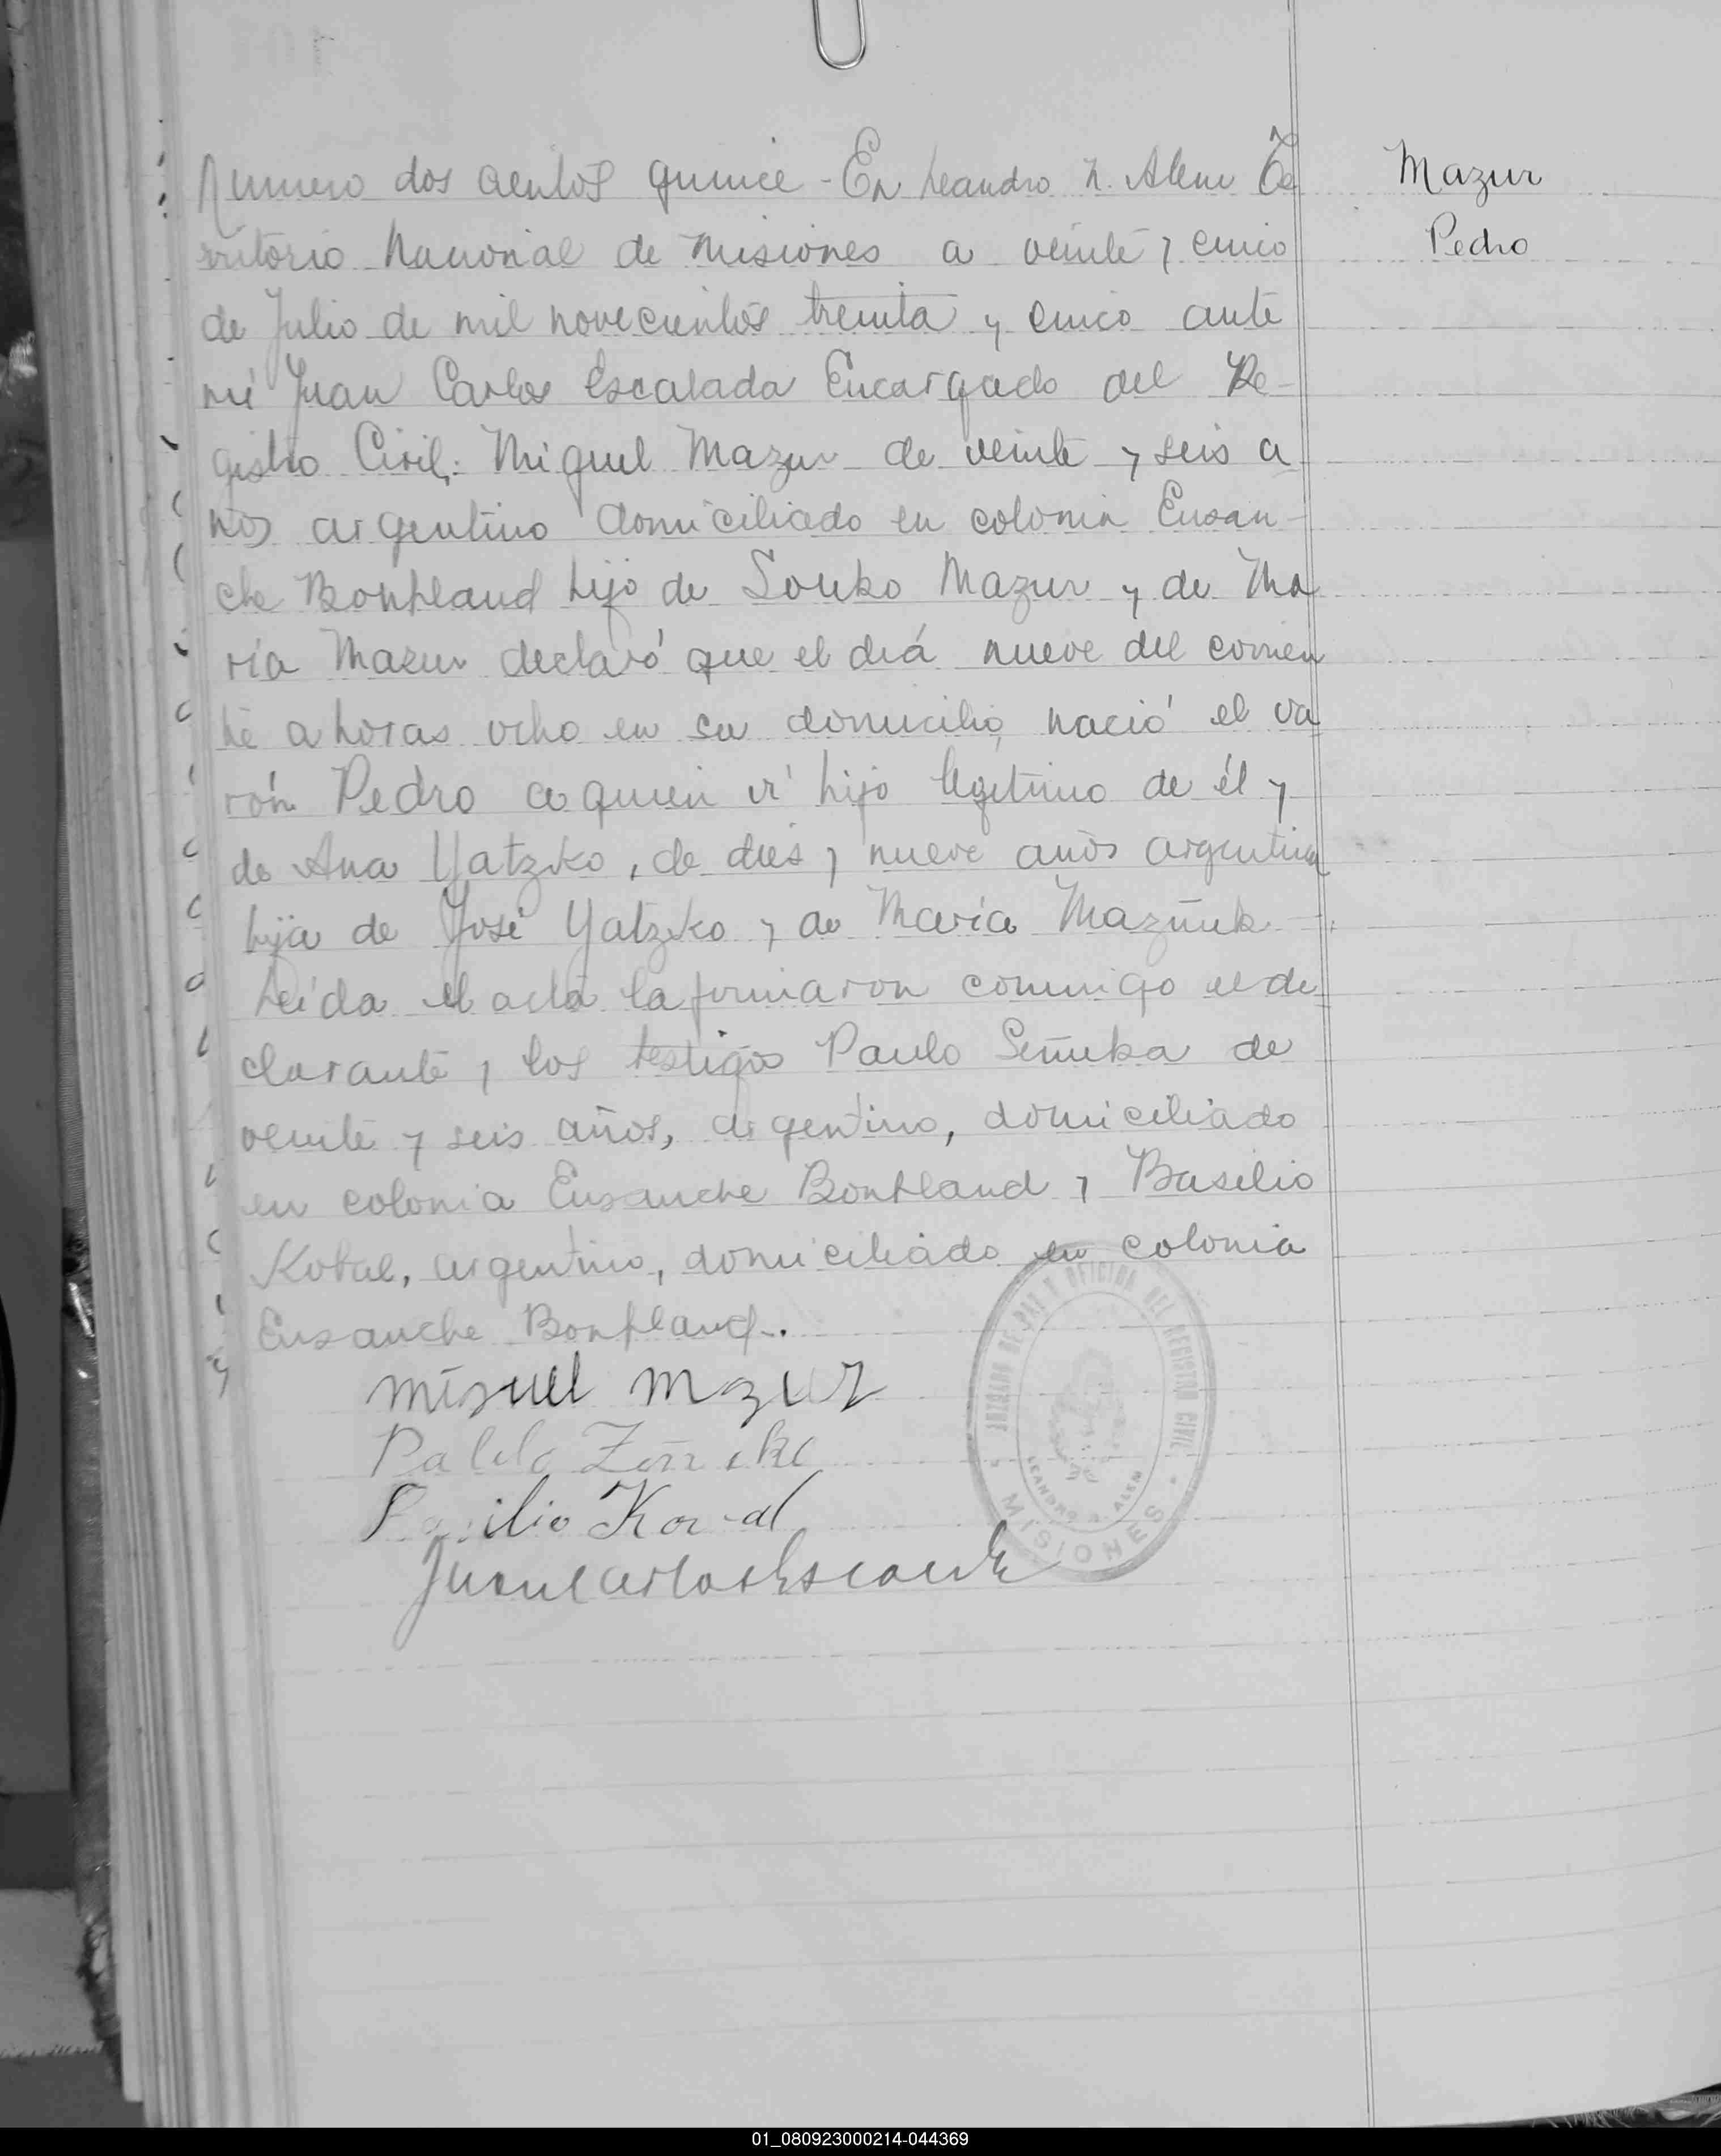 Numero dos cientos quince - En Leandro N. Alem Te
rritorio Nacional de Misiones a veinte y cinco
de Julio de mil novecientos treinta y cinco ante
mi Juan Carlos Escalada Encargado del Re-
gistro Civil: Miguel Mazur de veinte y seis a
ños argentino domiciliado en colonia Ensan-
che Bonpland hijo de Mazur y de Ma
ría Mazur declaró que el diá nueve del corrien
te a horas ocho en su domicilio nació el va
rón Pedro a quien ví hijo legítimo de él y
de Ana Yatzko, de dies y nueve años argentina
hija de José Yatzko y de María
Leída el acta la firmaron conmigo el de
clarante y los testigos Paulo Señuka de
veinte y seis años, argentino, domiciliado
en colonia Ensanche Bonpland y Basilio
Koval, argentino, domiciliado en colonia
Ensanche Bonpland.
miguel mazur
Basilio Koval
Juan Carlos Escalada
Mazur
Pedro
JUZGADO DE PAZ Y OFICINA DEL REGISTRO CIVIL
LEANDRO N. ALEM
MISIONES
01_080923000214-044369